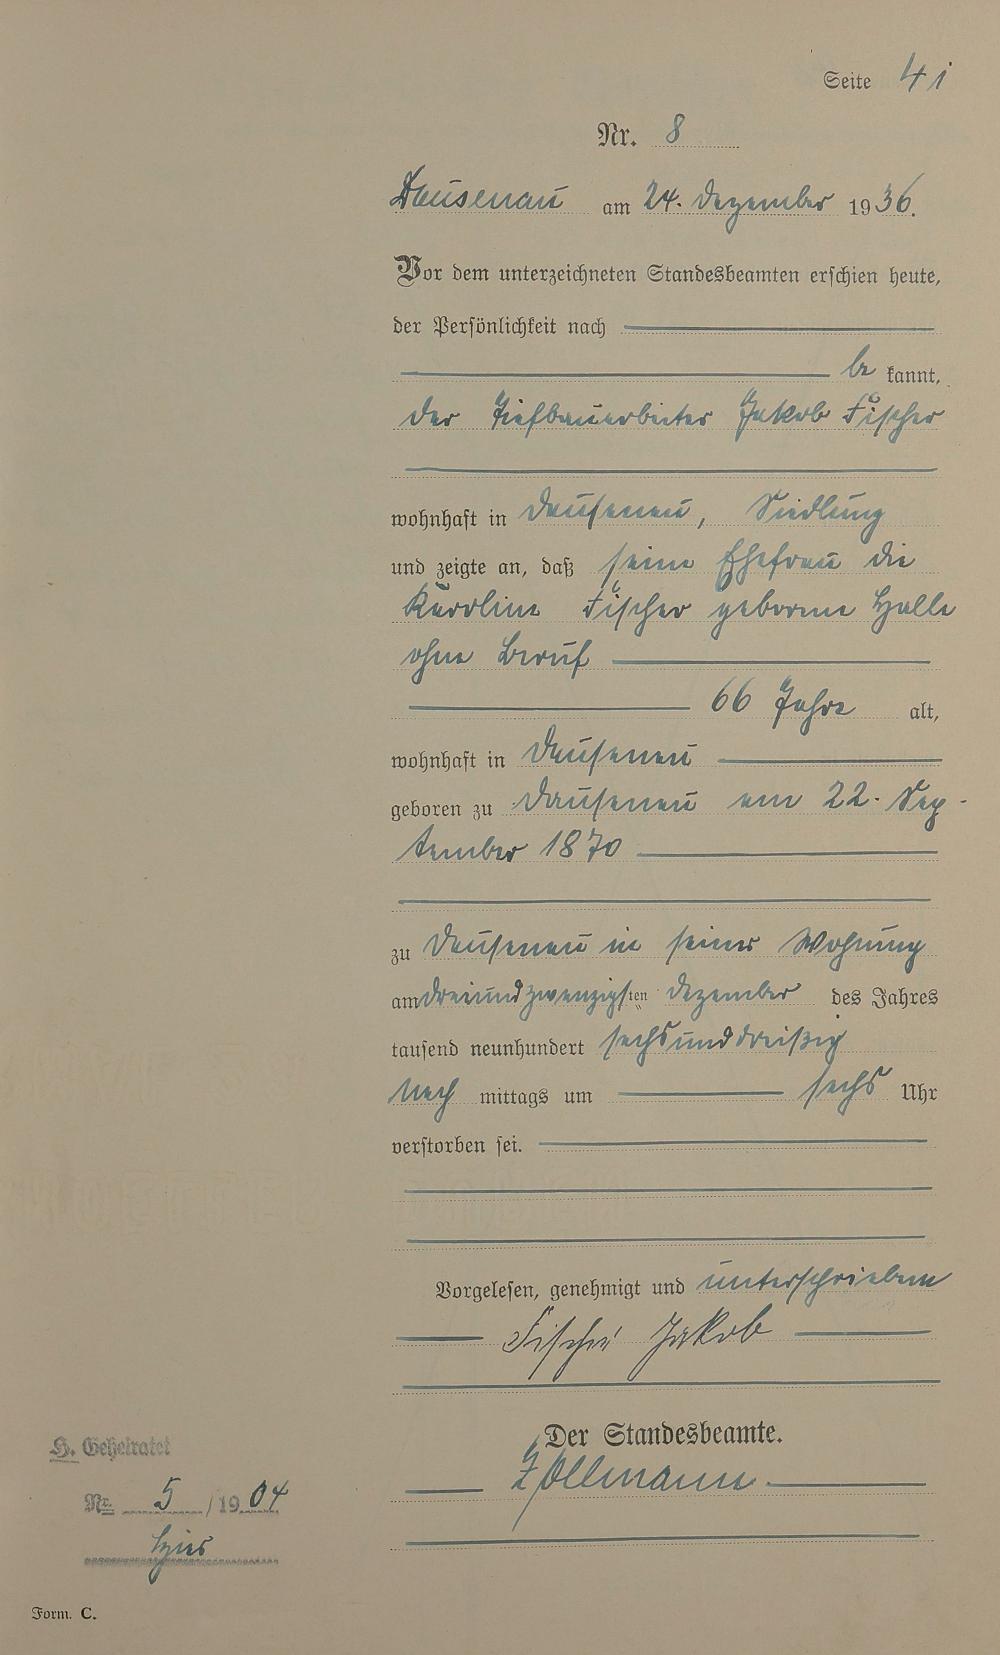 Seite 41
Nr. 8
Dausenau am 24. Dezember 1936.
Vor dem unterzeichneten Standesbeamten erschien heute,
der Persönlichkeit nach
be kannt,
der Tiefbauarbeiter Jakob Fischer
wohnhaft in Dausenau, Siedlung
und zeigte an, daß seine Ehefrau die
Karoline Fischer geborene Halle
ohne Beruf
66 Jahre alt,
wohnhaft in Dausenau
geboren zu Dausenau am 22. Sep-
tember 1870
zu Dausenau in seiner Wohnung
am dreiundzwanzigsten Dezember des Jahres
tausend neunhundert sechsunddreißig
nach mittags um sechs Uhr
verstorben sei.
Vorgelesen, genehmigt und unterschrieben
Fischer Jakob
Der Standesbeamte.
Zollmann
H. Geheiratet
Nr. 5 / 1904
hier
Form. C.